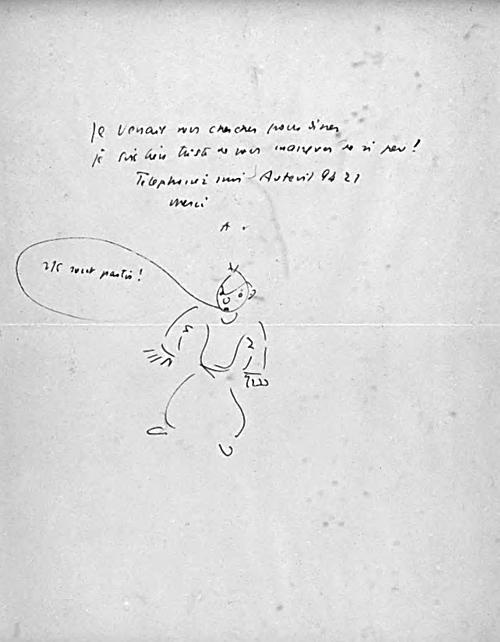 Je venais vous chercher pour dîner
je suis bien triste de vous manquer de si peu !
Téléphonez moi Auteuil 94 27
merci
A.
ils sont partis !